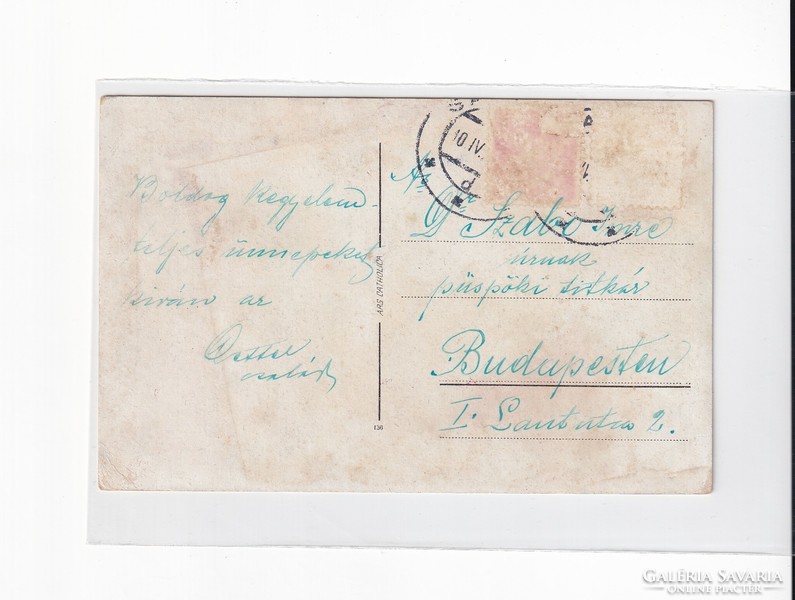 Boldog Kegyelem-
teljes ünnepeket
kíván az
család
ARS CATHOLICA
136
10 IV.
Dr Szabó Imre
úrnak
püspöki titkár
Budapesten
I. Lant utca 2.
GALÉRIA SAVARIA
ONLINE PIACTÉR